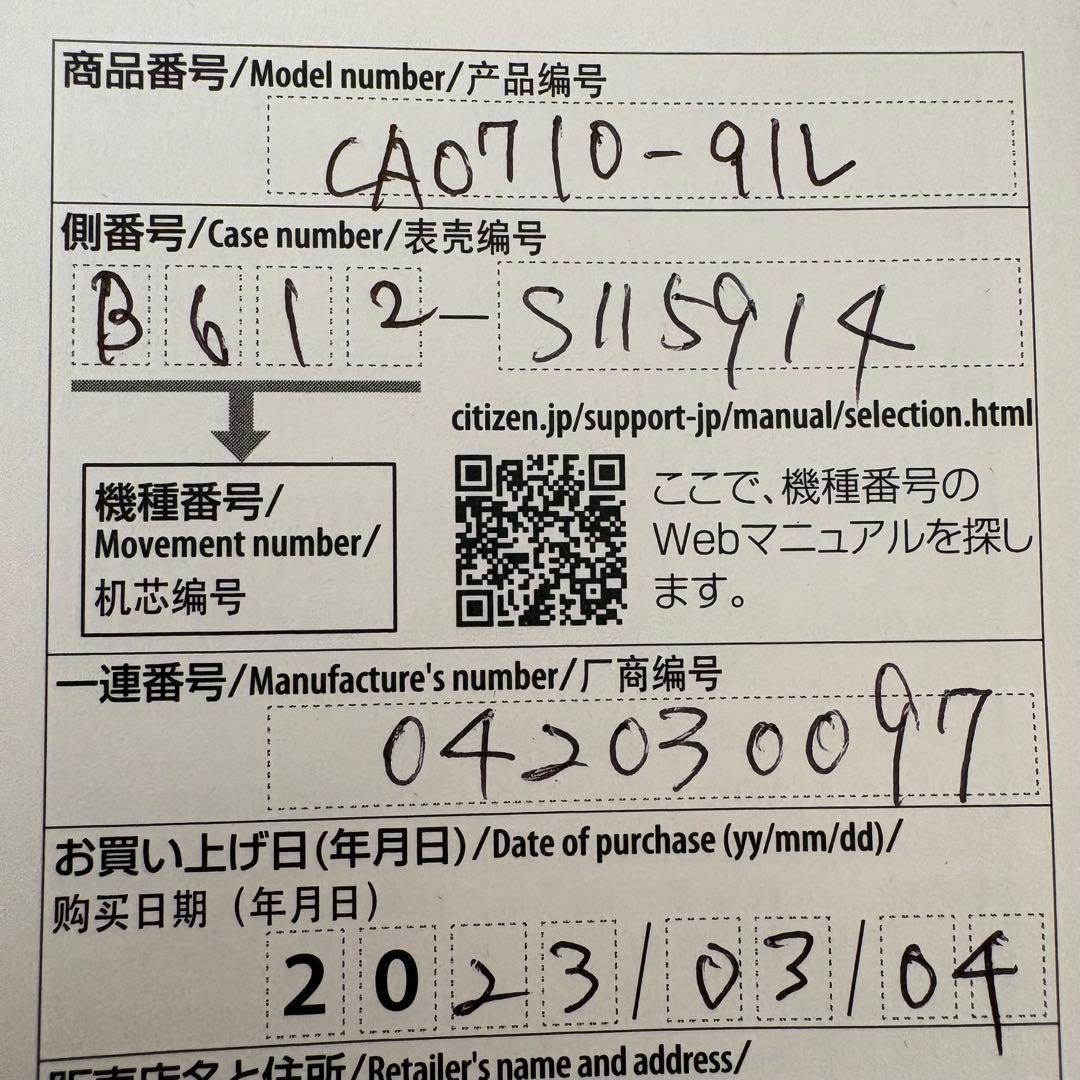 商品番号/Model number/产品编号
CA0710-91L
側番号/Case number/表壳编号
B612-S115914
citizen.jp/support-jp/manual/selection.html
機種番号/
Movement number/
机芯编号
ここで、機種番号の
Webマニュアルを探し
ます。
一連番号/Manufacture's number/厂商编号
042030097
お買い上げ日(年月日)/Date of purchase (yy/mm/dd)/
购买日期（年月日）
2023/03/04
販売店名と住所/Retailer's name and address/